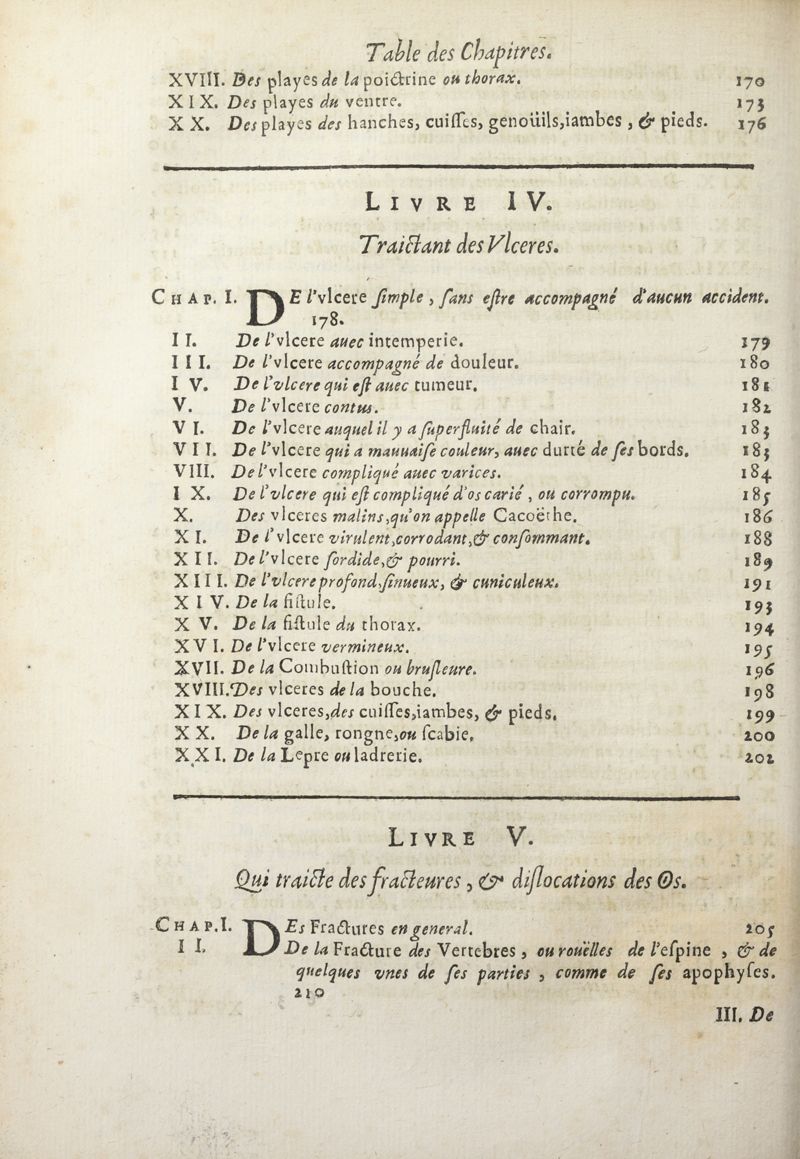 Table des Chapitres.
XVIII. Des playes de la poictrine ou thorax. 170
XIX. Des playes du ventre. 173
XX. Des playes des hanches, cuiſſes, genoüils, iambes, & pieds. 176
LIVRE IV.
Traictant des Vlceres.
CHAP. I. DE l'vlcere ſimple, ſans eſtre accompagné d'aucun accident.
178.
II. De l'vlcere auec intemperie. 179
III. De l'vlcere accompagné de douleur. 180
IV. De l'vlcere qui eſt auec tumeur. 181
V. De l'vlcere contus. 182
VI. De l'vlcere auquel il y a ſuperfluité de chair. 183
VII. De l'vlcere qui a mauuaiſe couleur, auec durté de ſes bords. 183
VIII. De l'vlcere compliqué auec varices. 184
IX. De l'vlcere qui eſt compliqué d'os carié, ou corrompu. 185
X. Des vlceres malins, qu'on appelle Cacoëthe. 186
XI. De l'vlcere virulent, corrodant, & conſommant. 188
XII. De l'vlcere ſordide, & pourri. 189
XIII. De l'vlcere profond, ſinueux, & cuniculeux. 191
XIV. De la fiſtule. 193
XV. De la fiſtule du thorax. 194
XVI. De l'vlcere vermineux. 195
XVII. De la Combuſtion ou bruſleure. 196
XVIII. Des vlceres de la bouche. 198
XIX. Des vlceres, des cuiſſes, iambes, & pieds. 199
XX. De la galle, rongne, ou ſcabie. 200
XXI. De la Lepre ou ladrerie. 202
LIVRE V.
Qui traicte des fracteures, & diſlocations des Os.
CHAP. I. DEs Fractures en general. 205
II. De la Fracture des Vertebres, ou rouëlles de l'eſpine, & de
quelques vnes de ſes parties, comme de ſes apophyſes.
210
III. De